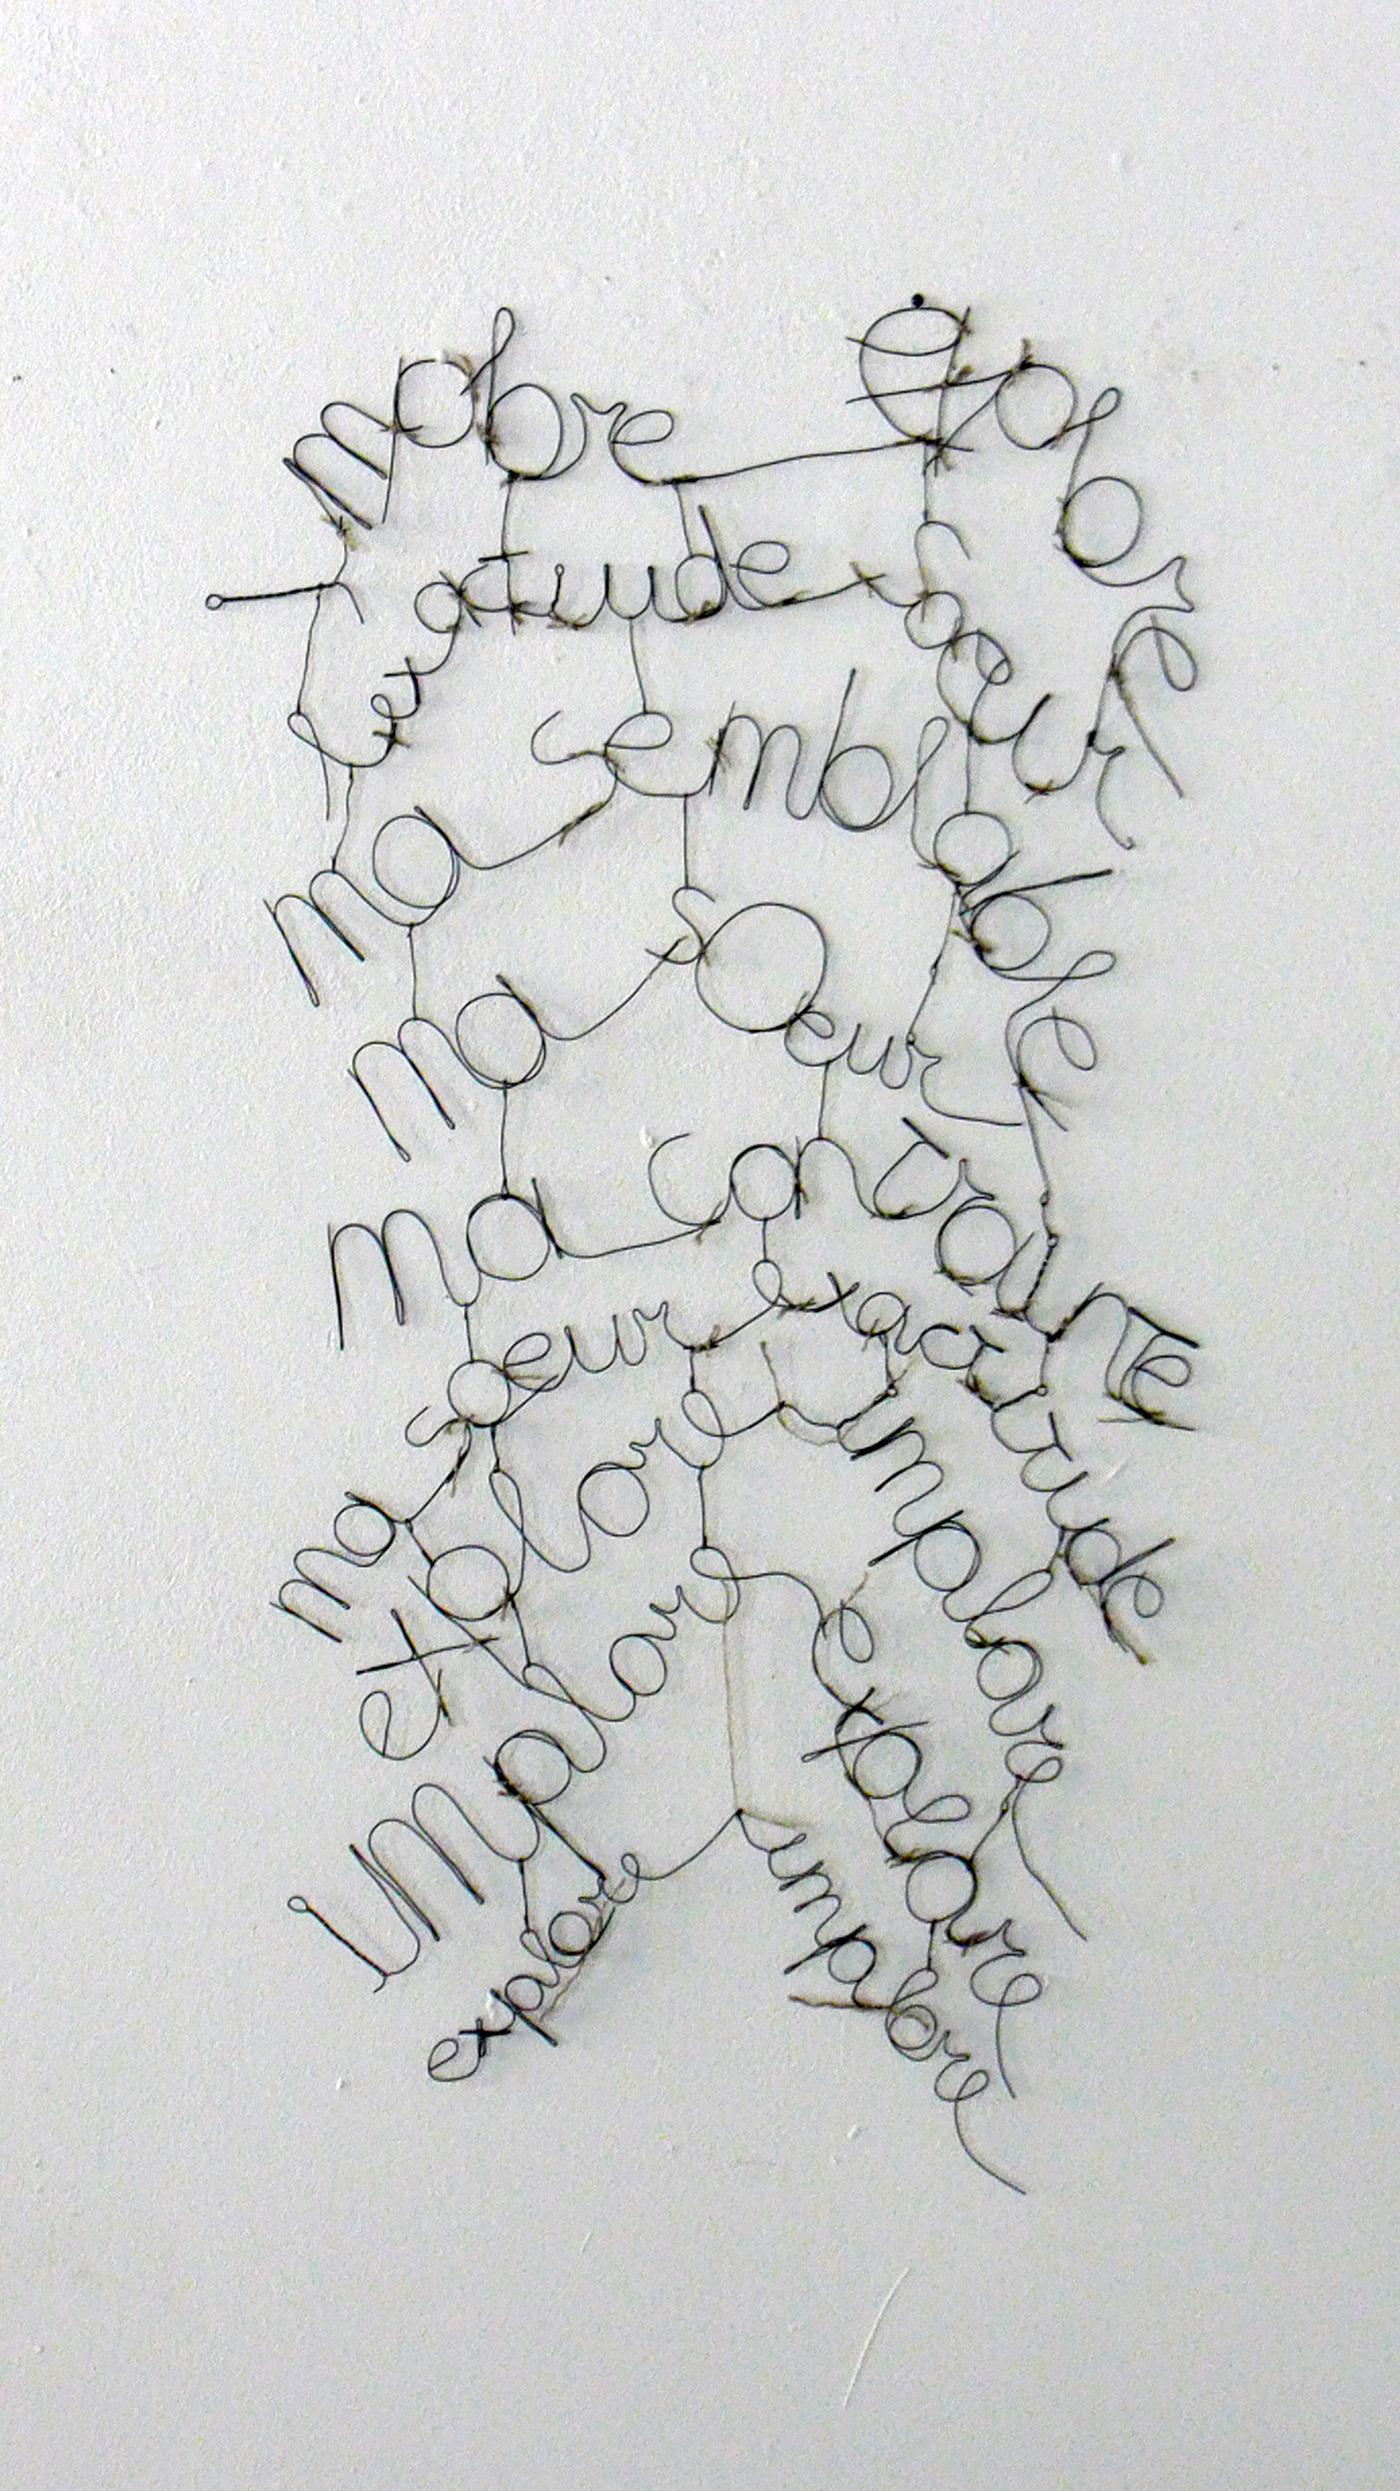 implore explore
lexactitude soeur
ma semblable
ma soeur
ma contrainte
ma soeur exactitude
explore implore
implore explore
explore implore